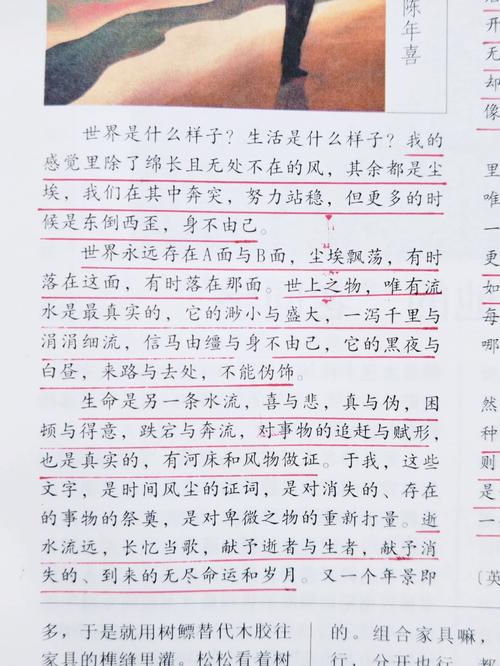 陈年喜
世界是什么样子？生活是什么样子？我的
感觉里除了绵长且无处不在的风，其余都是尘
埃，我们在其中奔突，努力站稳，但更多的时
候是东倒西歪，身不由己。
世界永远存在A面与B面，尘埃飘荡，有时
落在这面，有时落在那面。世上之物，唯有流
水是最真实的，它的渺小与盛大，一泻千里与
涓涓细流，信马由缰与身不由己，它的黑夜与
白昼，来路与去处，不能伪饰。
生命是另一条水流，喜与悲，真与伪，困
顿与得意，跌宕与奔流，对事物的追赶与赋形，
也是真实的，有河床和风物做证。于我，这些
文字，是时间风尘的证词，是对消失的、存在
的事物的祭奠，是对卑微之物的重新打量。逝
水流远，长忆当歌，献予逝者与生者，献予消
失的、到来的无尽命运和岁月。又一个年景即
多，于是就用树鳔替代木胶往
家具的榫缝里灌。松松看着树
的。组合家具嘛，
行，分开也行，都
开
无
却
像
里
唯
一
更
如
每
哪
然
种
则
是
一
〔英